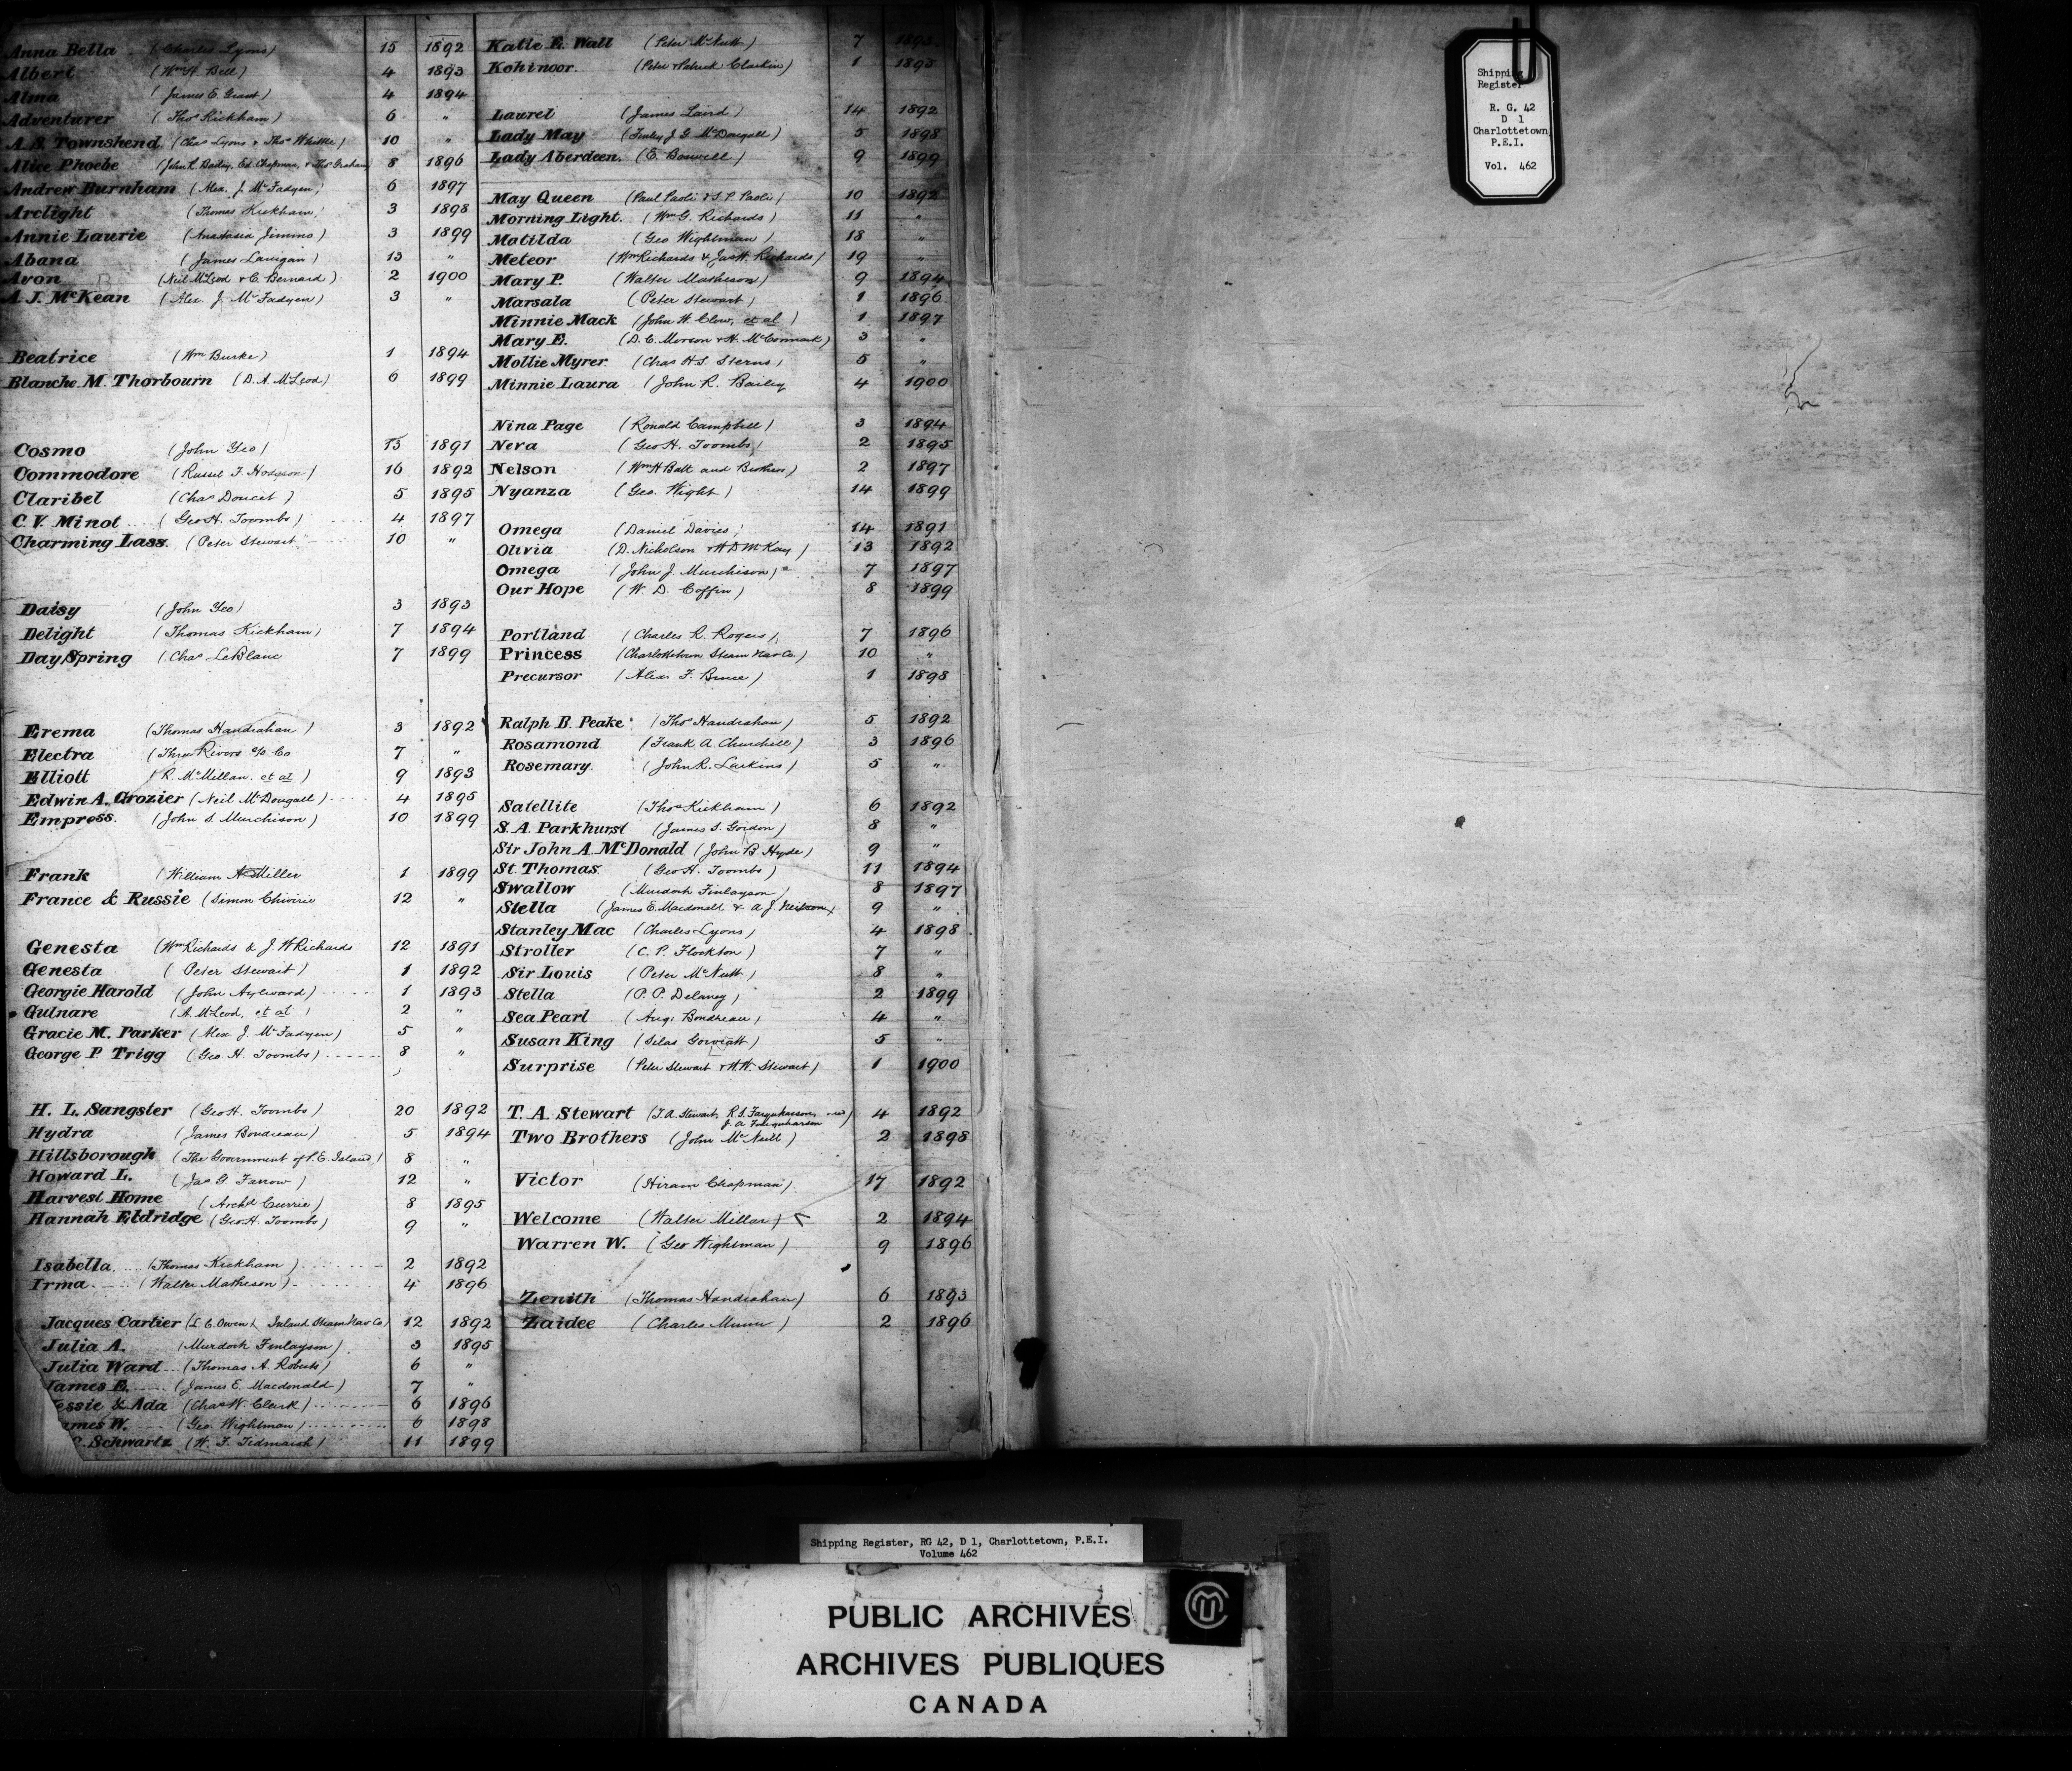 Anna Bella (Charles Lyons) 15 1892
Albert (Wm H. Bell) 4 1893
Alma (James E. Grant) 4 1894
Adventurer (Thos Kickham) 6 "
A. S. Townshend (Chas Lyons & Thos Whittle) 10 "
Alice Phoebe (John R. Bailey, Ed. Chapman, & Thos Graham) 8 1896
Andrew Burnham (Alex. J. McFadyen) 6 1897
Arclight (Thomas Kickham) 3 1898
Annie Laurie (Anastasia Jimmo) 3 1899
Abana (James Lanigan) 13 "
Avon (Neil McLeod & C. Bernard) 2 1900
A. J. McKean (Alex. J. McFadyen) 3 "
Beatrice (Wm Burke) 1 1894
Blanche M. Thorbourn (D. A. McLeod) 6 1899
Cosmo (John Yeo) 13 1891
Commodore (Russel F. Hodgson) 16 1892
Claribel (Chas Doucet) 5 1895
C. V. Minot (Geo H. Toombs) 4 1897
Charming Lass. (Peter Stewart 10 "
Daisy (John Yeo) 3 1893
Delight (Thomas Kickham) 7 1894
Day Spring (Chas LeBlanc 7 1899
Erema (Thomas Handrahan) 3 1892
Electra (Three Rivers Co 7 "
Elliott (R. McMillan, et al) 9 1893
Edwin A. Grozier (Neil McDougall) 4 1895
Empress. (John S. Murchison) 10 1899
Frank (William A Miller 1 1899
France & Russie (Simon Chivirie 12 "
Genesta (Wm Richards & J. W Richards 12 1891
Genesta (Peter Stewart) 1 1892
Georgie Harold (John Ayleward) 1 1893
Gulnare (A. McLeod, et al) 2 "
Gracie M. Parker (Alex J. McFadyen) 5 "
George P Trigg (Geo. H. Toombs) 8 "
H. L. Sangster (Geo H. Toombs) 20 1892
Hydra (James Boudreau) 5 1894
Hillsborough (The Government of P. E. Island) 8 "
Howard L. (Jas G. Farrow) 12 "
Harvest Home (Archd Currie) 8 1895
Hannah Eldridge (Geo H. Toombs) 9 "
Isabella (Thomas Kickham) 2 1892
Irma (Walter Matheson) 4 1896
Jacques Cartier (L. C. Owen) Inland Steam Nav Co) 12 1892
Julia A. (Murdoch Finlayson) 3 1895
Julia Ward (Thomas A. Roberts) 6 "
James E. (James E. Macdonald) 7 "
essie & Ada (Chas W. Clark) 6 1896
ames W. (Geo. Wightman) 6 1898
C. Schwartz (W. F. Tidmarsh) 11 1899
Katie E. Wall (Peter McNutt) 7 1893
Kohinoor. (Peter & Patrick Clarkin) 1 1895
Laurel (James Laird) 14 1892
Lady May (Finlay J. G. McDougall) 5 1898
Lady Aberdeen. (E. Boswell) 9 1899
May Queen (Paul Paoli & S. P. Paoli) 10 1892
Morning Light. (Wm G. Richards) 11 "
Matilda (Geo Wightman) 18 "
Meteor (Wm Richards & Jas W. Richards) 19 "
Mary P. (Walter Matheson) 9 1894
Marsala (Peter Stewart) 1 1896
Minnie Mack (John W. Clow, et al) 1 1897
Mary E. (D. C. Morson & H. McCormack) 3 "
Mollie Myrer (Chas H. S. Sterns) 5 "
Minnie Laura (John R. Bailey 4 1900
Nina Page (Ronald Campbell) 3 1894
Nera (Geo H. Toombs) 2 1895
Nelson (Wm H Ball and Brothers) 2 1897
Nyanza (Geo. Wight) 14 1899
Omega (Daniel Davies) 14 1891
Olivia (D. Nicholson & H D McKay) 13 1892
Omega (John J. Murchison) 7 1897
Our Hope (W. D. Coffin) 8 1899
Portland (Charles R. Rogers) 7 1896
Princess (Charlottetown Steam Nav Co.) 10 "
Precursor (Alex. F. Bruce) 1 1898
Ralph B. Peake (Thos Handrahan) 5 1892
Rosamond (Frank A. Churchill) 3 1896
Rosemary (John R. Larkins) 5 "
Satellite (Thos Kickham) 6 1892
S. A. Parkhurst (James S. Gordon) 8 "
Sir John A. McDonald (John B. Hyde) 9 "
St. Thomas. (Geo H. Toombs) 11 1894
Swallow (Murdoch Finlayson) 8 1897
Stella (James E. Macdonald & A. J. Neilson) 9 "
Stanley Mac (Charles Lyons) 4 1898
Stroller (C. P. Flockton) 7 "
Sir Louis (Peter McNutt) 8 "
Stella (P. P. Delaney) 2 1899
Sea Pearl (Aug: Boudreau) 4 "
Susan King (Silas) 5 "
Surprise (Peter Stewart & H. W. Stewart) 1 1900
T. A. Stewart (T. A. Stewart, R. S. Farquharson, and) 4 1892
J. A. Farquharson
Two Brothers (John McNeill) 2 1898
Victor (Hiram Chapman) 17 1892
Welcome (Walter Millar) 2 1894
Warren W. (Geo Wightman) 9 1896
Zenith (Thomas Handrahan) 6 1893
Zaidee (Charles Munn) 2 1896
Shipping
Register
R. G. 42
D 1
Charlottetown,
P.E.I.
Vol. 462
Shipping Register, RG 42, D 1, Charlottetown, P.E.I.
Volume 462
PUBLIC ARCHIVES
ARCHIVES PUBLIQUES
CANADA